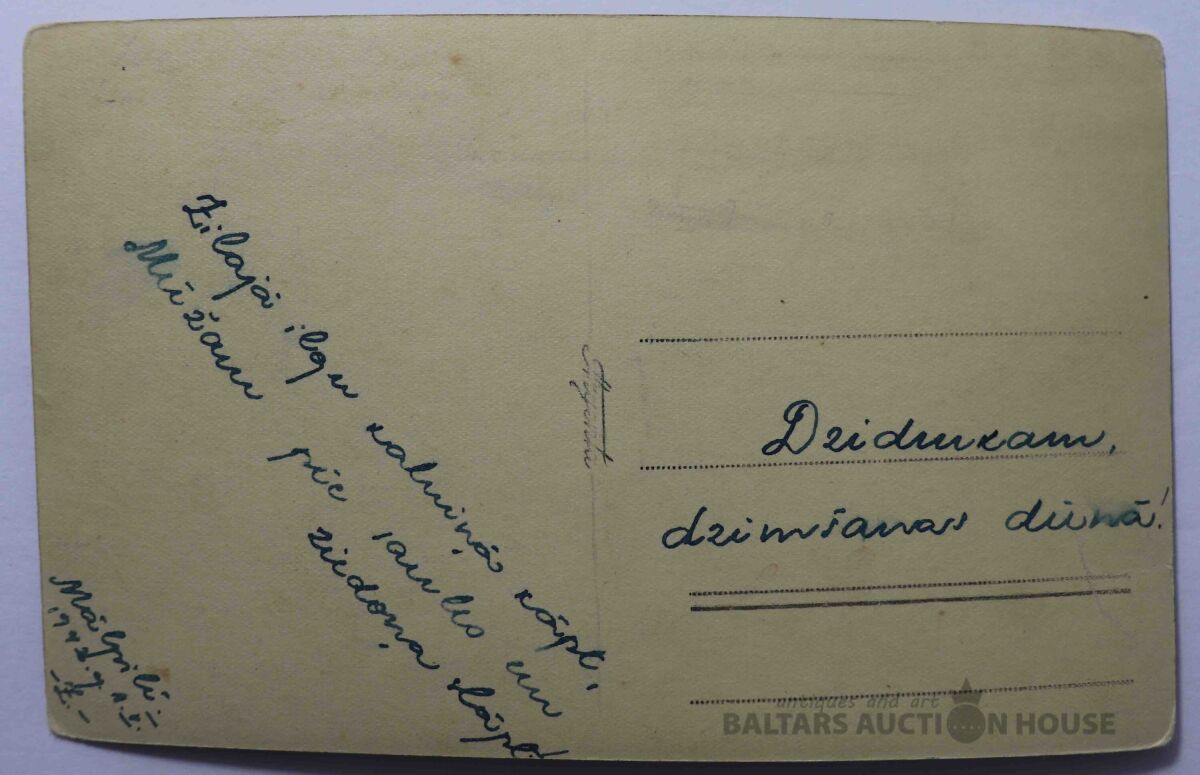 Zilajā ilgu kalniņā kāpt,
Mūžam pie saules un
ziedoņa slāpt!
Mālpilī.-
-Z.-
Dzidrukam,
dzimšanas dienā!
antiques and art
BALTARS AUCTION HOUSE